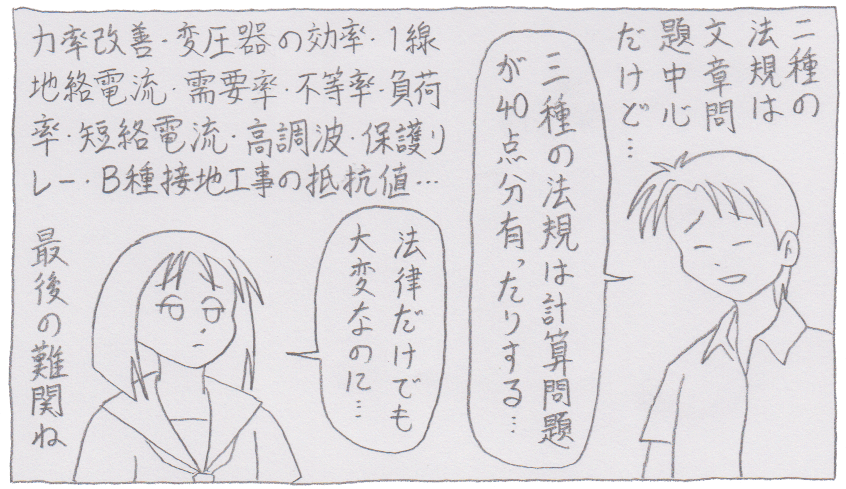 二種の
法規は
文章問
題中心
だけど…
三種の法規は計算問題
が40点分有ったりする…
力率改善・変圧器の効率・1線
地絡電流・需要率・不等率・負荷
率・短絡電流・高調波・保護リ
レー・B種接地工事の抵抗値…
法律だけでも
大変なのに…
最後の難関ね